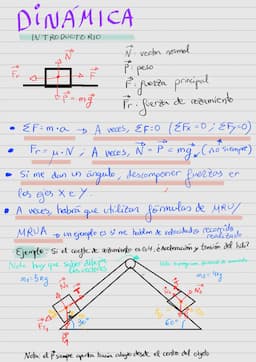 DINÁMICA
INTRODUCTORIO
N: vector normal
P: peso
F: fuerza principal
Fr: fuerza de rozamiento
N
Fr
F
P = mg
• ΣF = m·a → A veces, ΣF=0 (ΣFx=0; ΣFy=0)
• Fr = μ·N; A veces, N = P = mg (no siempre)
• Si me dan un ángulo, descomponer fuerzas en
los ejes X e Y.
• A veces, habrá que utilizar fórmulas de MRU/
MRUA → un ejemplo es si me hablan de velocidades
Ejemplo: Si el coefic. de rozamiento es 0.4, ¿aceleración y tensión del hilo?
Nota: hay que saber dibujar
los vectores
m1=5kg
m2=4kg
30°
60°
Nota: el P siempre apunta hacia abajo desde el centro del objeto